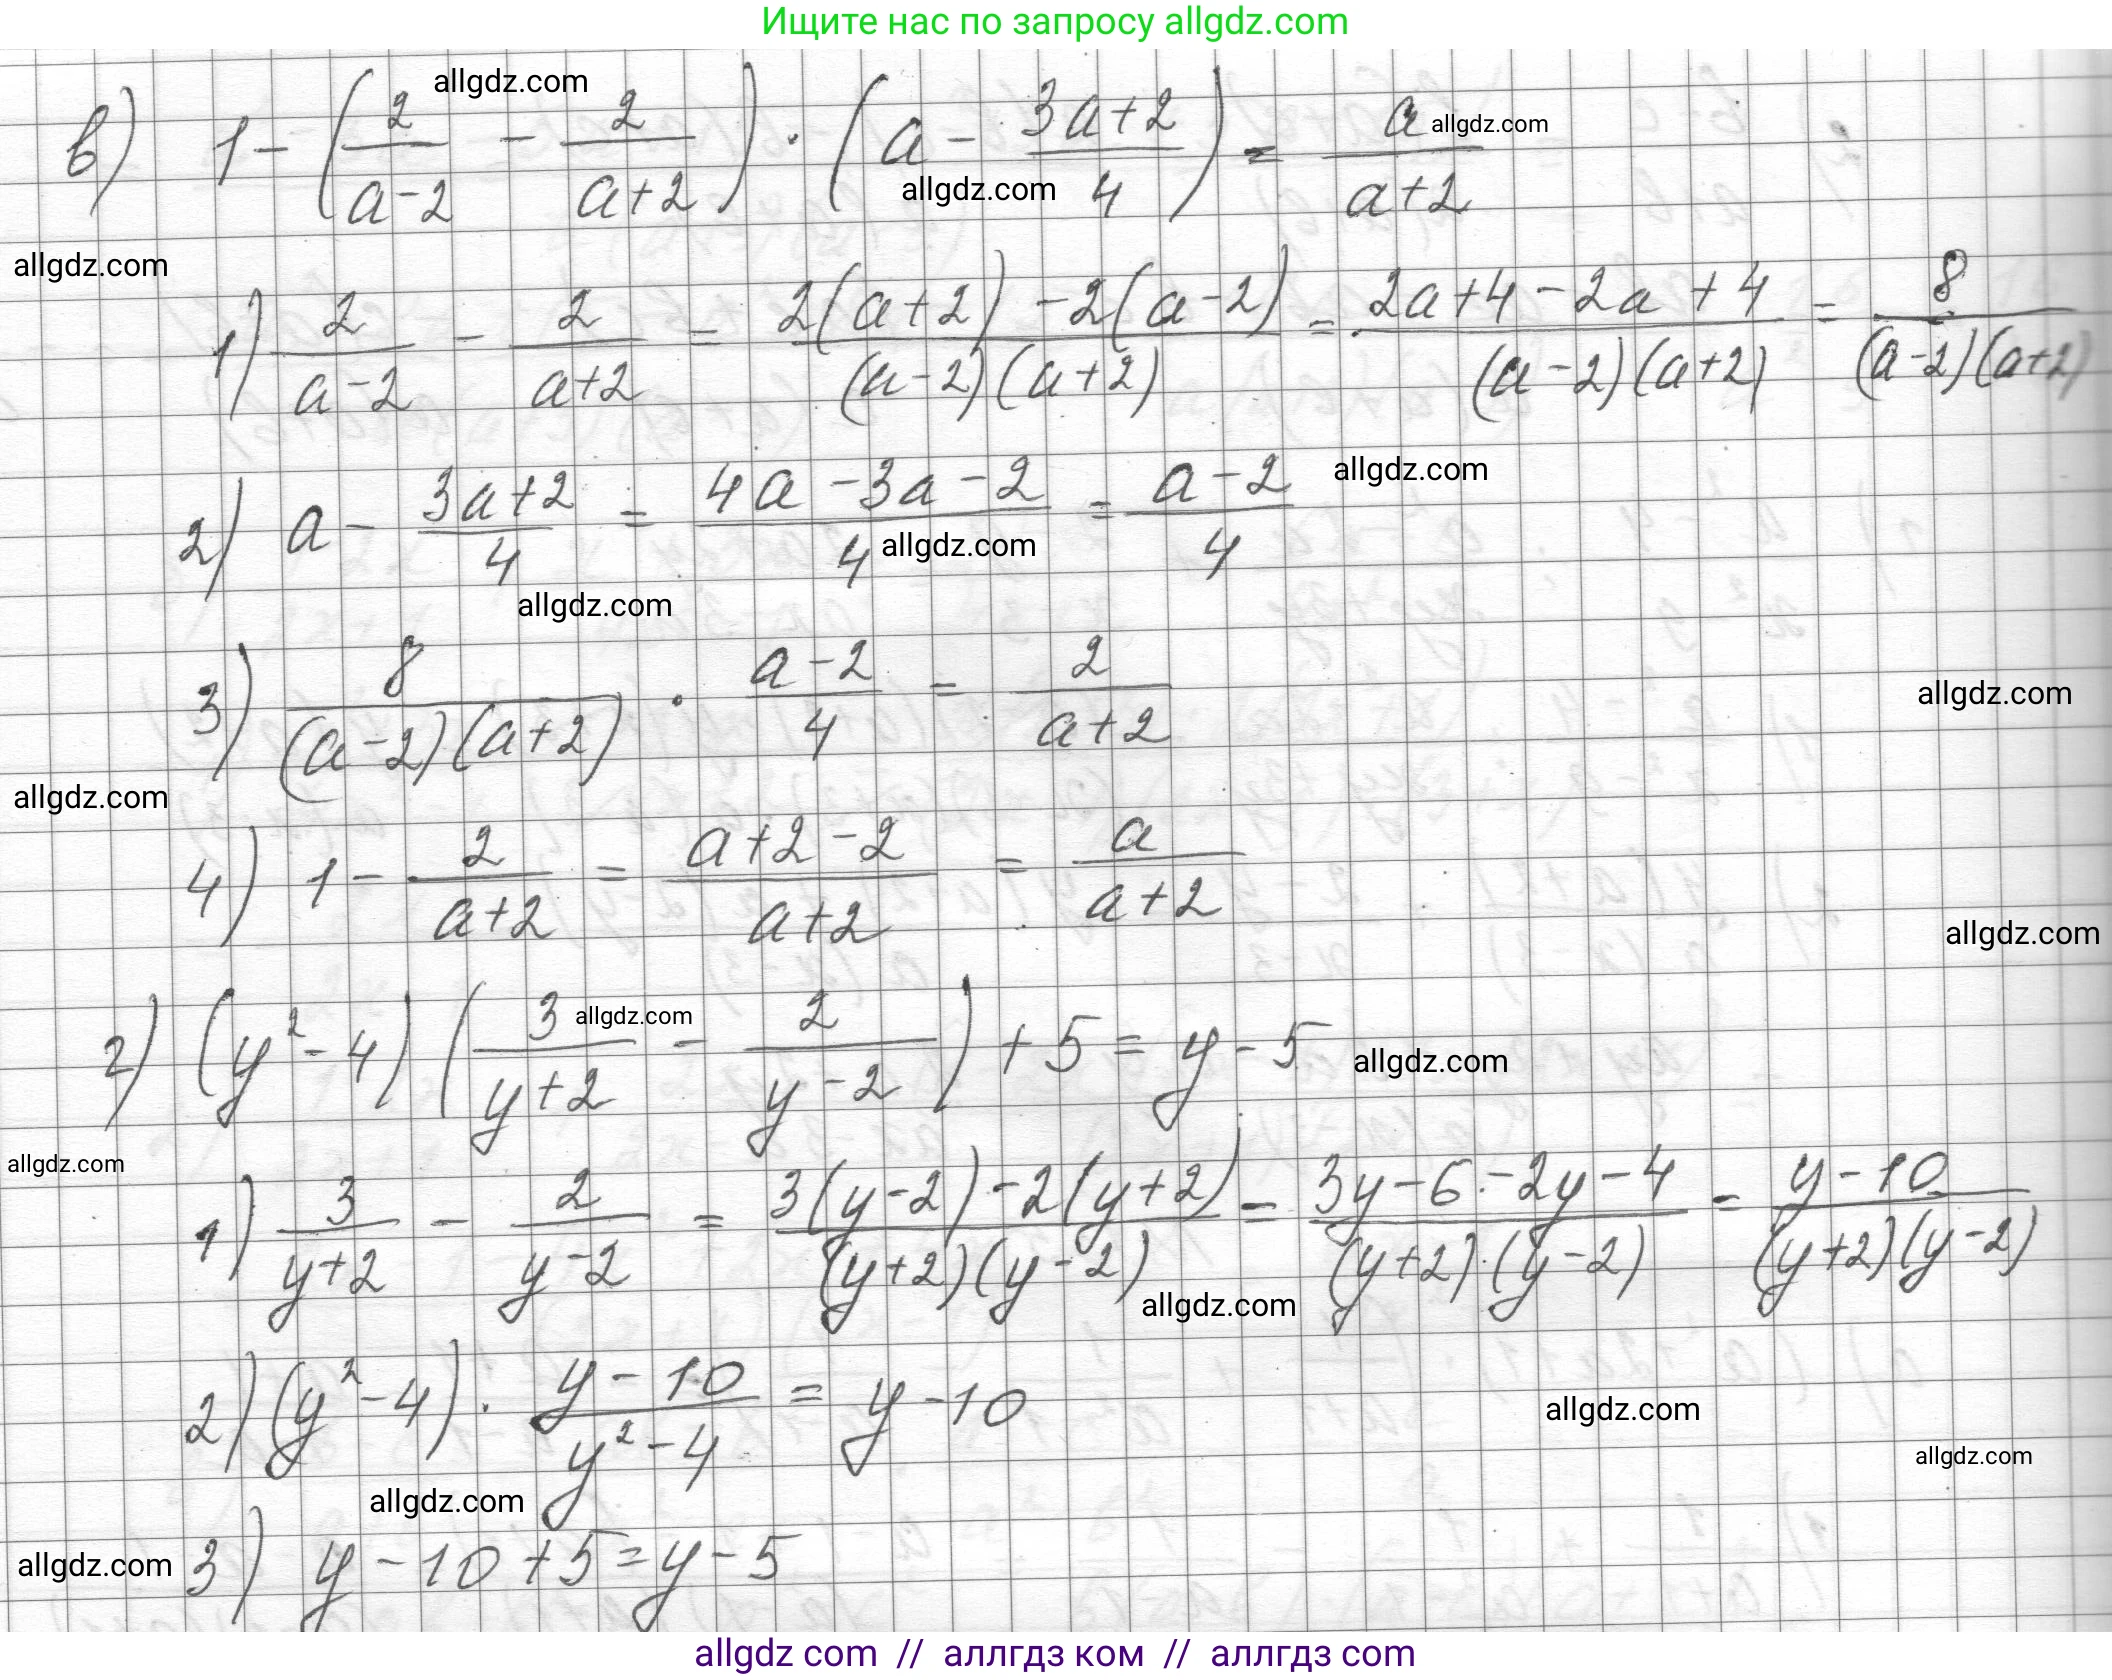 Ищите нас по запросу allgdz.com
allgdz.com
в) 1 - (2/(a-2) - 2/(a+2)) · (a - (3a+2)/4) = a/(a+2)
allgdz.com
allgdz.com
allgdz.com
1) 2/(a-2) - 2/(a+2) = (2(a+2) - 2(a-2))/((a-2)(a+2)) = (2a+4-2a+4)/((a-2)(a+2)) = 8/((a-2)(a+2))
allgdz.com
2) a - (3a+2)/4 = (4a-3a-2)/4 = (a-2)/4
allgdz.com
allgdz.com
3) 8/((a-2)(a+2)) · (a-2)/4 = 2/(a+2)
allgdz.com
allgdz.com
4) 1 - 2/(a+2) = (a+2-2)/(a+2) = a/(a+2)
allgdz.com
allgdz.com
г) (y²-4)(3/(y+2) - 2/(y-2)) + 5 = y-5
allgdz.com
allgdz.com
1) 3/(y+2) - 2/(y-2) = (3(y-2)-2(y+2))/((y+2)(y-2)) = (3y-6-2y-4)/((y+2)(y-2)) = (y-10)/((y+2)(y-2))
allgdz.com
2) (y²-4) · (y-10)/(y²-4) = y-10
allgdz.com
allgdz.com
allgdz.com
3) y-10+5=y-5
allgdz.com
allgdz com // аллгдз ком // аллгдз com